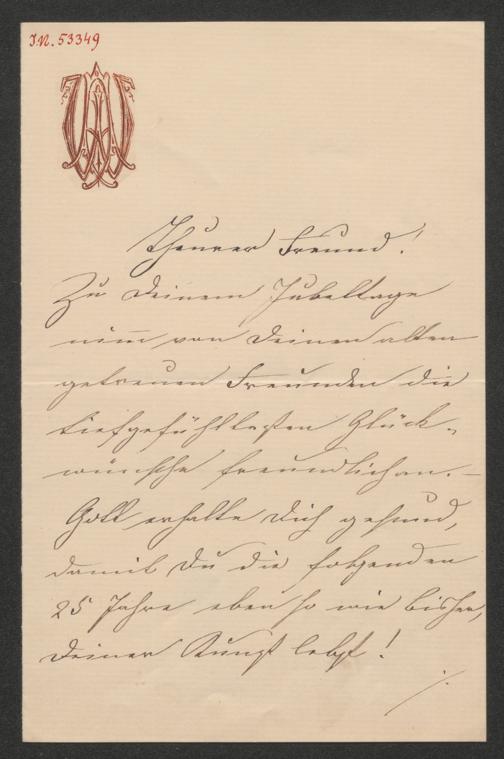 I.N. 53349
Theurer Freund!
Zu Deinem Jubeltage
nim̅ von Deinen alten
getreuen Freunden die
tiefgefühltesten Glück-
wünsche freundlich an. –
Gott erhalte Dich gesund,
damit Du die folgenden
25 Jahre eben so wie bisher,
Deiner Kunst lebst!
./.